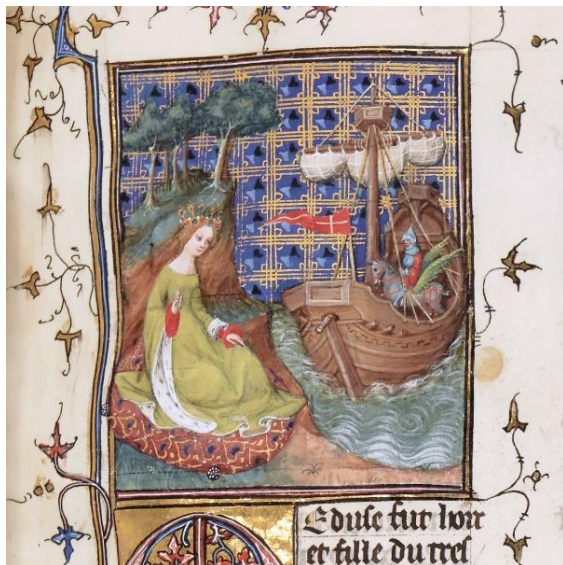 MEduse fut hoir
et fille du tres